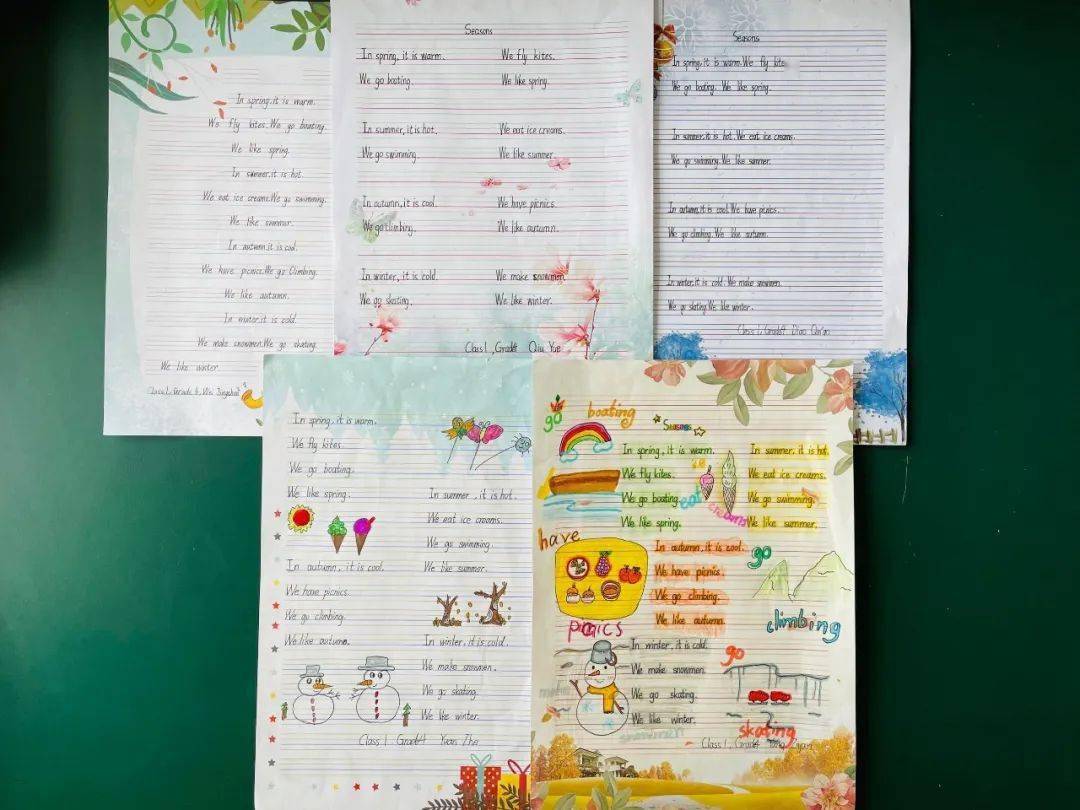 In spring, it is warm.
We fly kites. We go boating.
We like spring.
In summer, it is hot.
We eat ice creams. We go swimming.
We like summer.
In autumn, it is cool.
We have picnics. We go Climbing.
We like autumn.
In winter, it is cold.
We make snowmen. We go skating.
We like winter.
Class 1, Grade 4, Wei
Seasons
In spring, it is warm. We fly kites.
We go boating. We like spring.
In summer, it is hot. We eat ice creams.
We go swimming. We like summer.
In autumn, it is cool. We have picnics.
We go climbing. We like autumn.
In winter, it is cold. We make snowmen.
We go skating. We like winter.
Class 1, Grade4 Qiu Yue
Seasons
In spring, it is warm. We fly kite.
We go boating. We like spring.
In summer, it is hot. We eat ice creams.
We go swimming. We like summer.
In autumn, it is cool. We have picnics.
We go climbing. We like autumn.
In winter, it is cold. We make snowmen.
We go skating. We like winter.
Class 1, Grade4
In spring, it is warm.
We fly kites.
We go boating.
We like spring.
In summer, it is hot.
We eat ice creams.
We go swimming.
We like summer.
In autumn, it is cool.
We have picnics.
We go climbing.
We like autumn.
In winter, it is cold.
We make snowmen.
We go skating.
We like winter.
Class 1 Grade4 Yuan Zhe
go boating
Seasons
In spring, it is warm.
We fly kites.
We go boating.
We like spring.
eat
creams
In summer, it is hot.
We eat ice creams.
We go swimming.
We like summer.
have
picnics
In autumn, it is cool.
We have picnics.
We go climbing.
We like autumn.
go
climbing
In winter, it is cold.
We make snowmen.
We go skating.
We like winter.
snowmen
go
skating
Class 1, Grade4